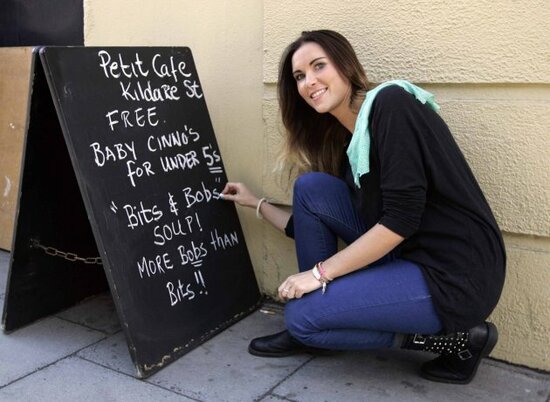 Petit Cafe
Kildare St
FREE.
BABY CINNO'S
FOR UNDER 5's
"Bits & Bobs"
SOUP!
MORE Bobs THAN
Bits!!